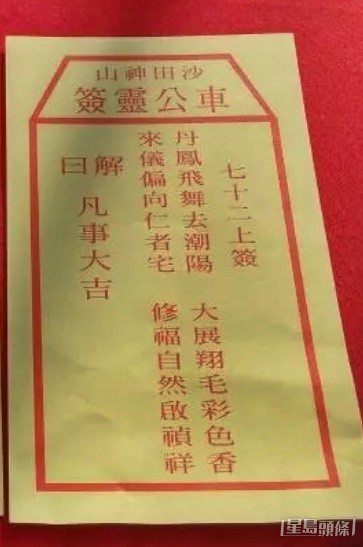 沙田神山
車公靈簽
七十二上簽
丹鳳飛舞去潮陽
大展翔毛彩色香
來儀偏向仁者宅
修福自然啟禎祥
解曰
凡事大吉
星島頭條